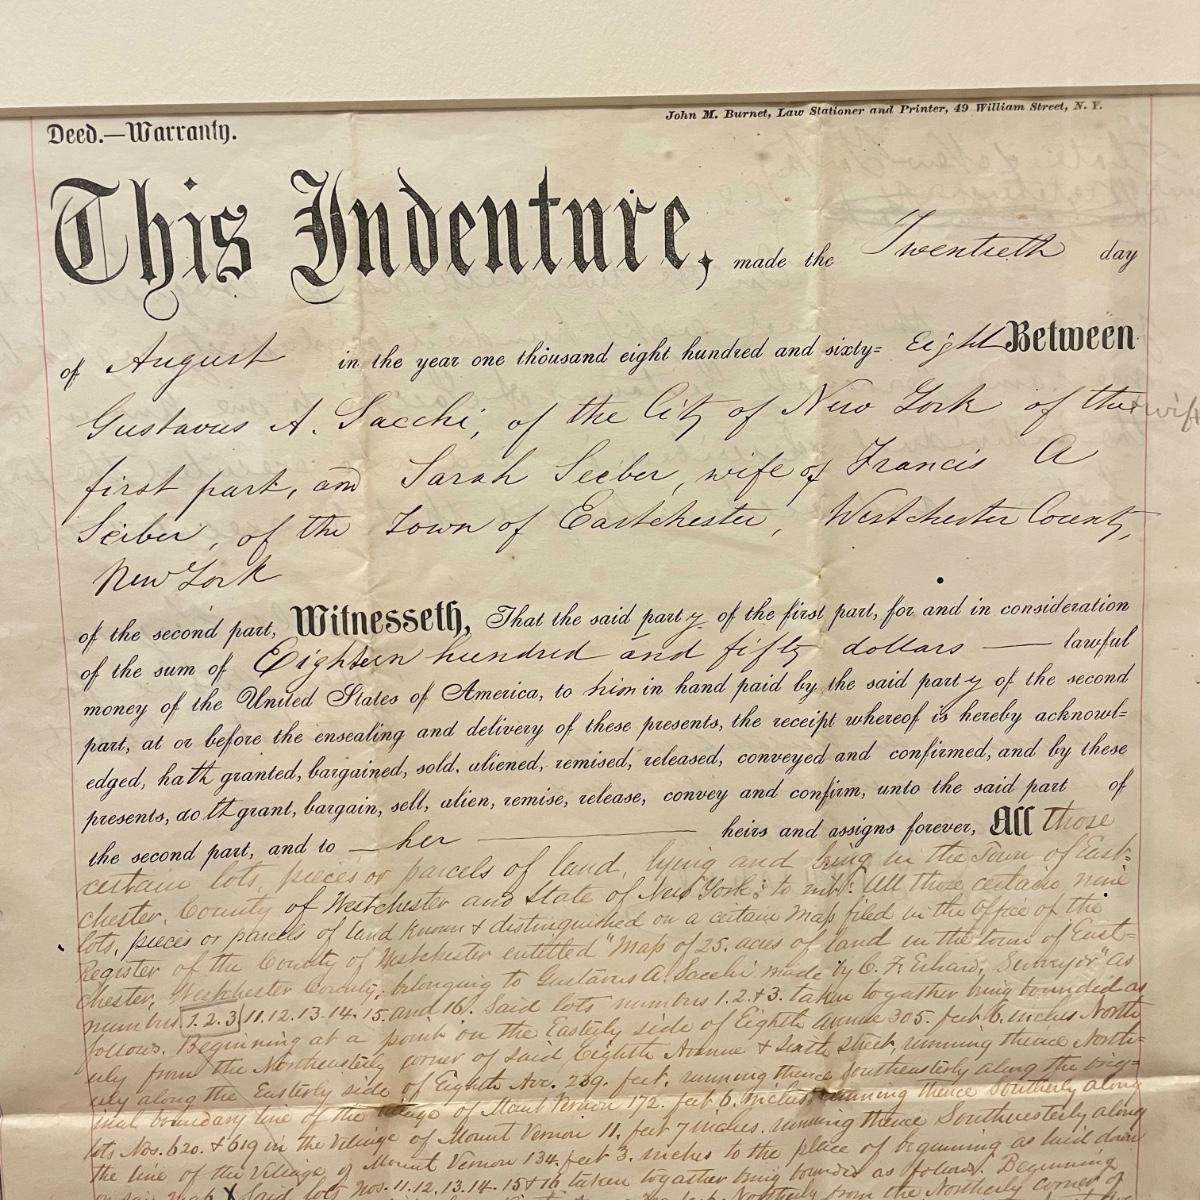 John M. Burnet, Law Stationer and Printer, 49 William Street, N. Y.
Deed.—Warranty.
This Indenture, made the Twentieth day
of August in the year one thousand eight hundred and sixty= Eight Between
Gustavus A. Sacchi, of the City of New York of the
first part, and Sarah Seeber, wife of Francis A
Seiber, of the Town of Eastchester, Westchester County,
New York
of the second part, Witnesseth, That the said party of the first part, for and in consideration
of the sum of Eighteen hundred and fifty dollars — lawful
money of the United States of America, to him in hand paid by the said party of the second
part, at or before the ensealing and delivery of these presents, the receipt whereof is hereby acknowl=
edged, hath granted, bargained, sold, aliened, remised, released, conveyed and confirmed, and by these
presents, doth grant, bargain, sell, alien, remise, release, convey and confirm, unto the said part of
the second part, and to — her — heirs and assigns forever, All those
certain lots, pieces or parcels of land, lying and being in the Town of East=
chester, County of Westchester and State of New York: to wit: All those certain nine
lots, pieces or parcels of land known & distinguished on a certain Map filed in the Office of the
Register of the County of Westchester entitled "Map of 25. acres of land in the town of East=
chester, Westchester County, belonging to Gustavus A. Sacchi made by C. F. Surveyor" as
numbers 1.2.3 11.12.13.14.15. and 16. Said lots numbers 1.2.&3. taken together being bounded as
follows. Beginning at a point on the Easterly side of Eighth Avenue 305. feet 6. inches North
erly from the Northeasterly corner of said Eighth Avenue & Sixth Street, running thence North=
erly along the Easterly side of Eighth Ave. 239. feet, running thence Southeasterly along the orig=
inal boundary line of the village of Mount Vernon 172. feet 6. inches, running thence Southerly along
lots Nos. 620. & 619 in the Village of Mount Vernon 11. feet 7 inches. running thence Southwesterly along
the line of the Village of Mount Vernon 134. feet 3. inches to the place of beginning as laid down
on said map X Said lots Nos. 11.12.13.14.15 & 16 taken together being bounded as follows. Beginning
Northerly from the Northerly corner of